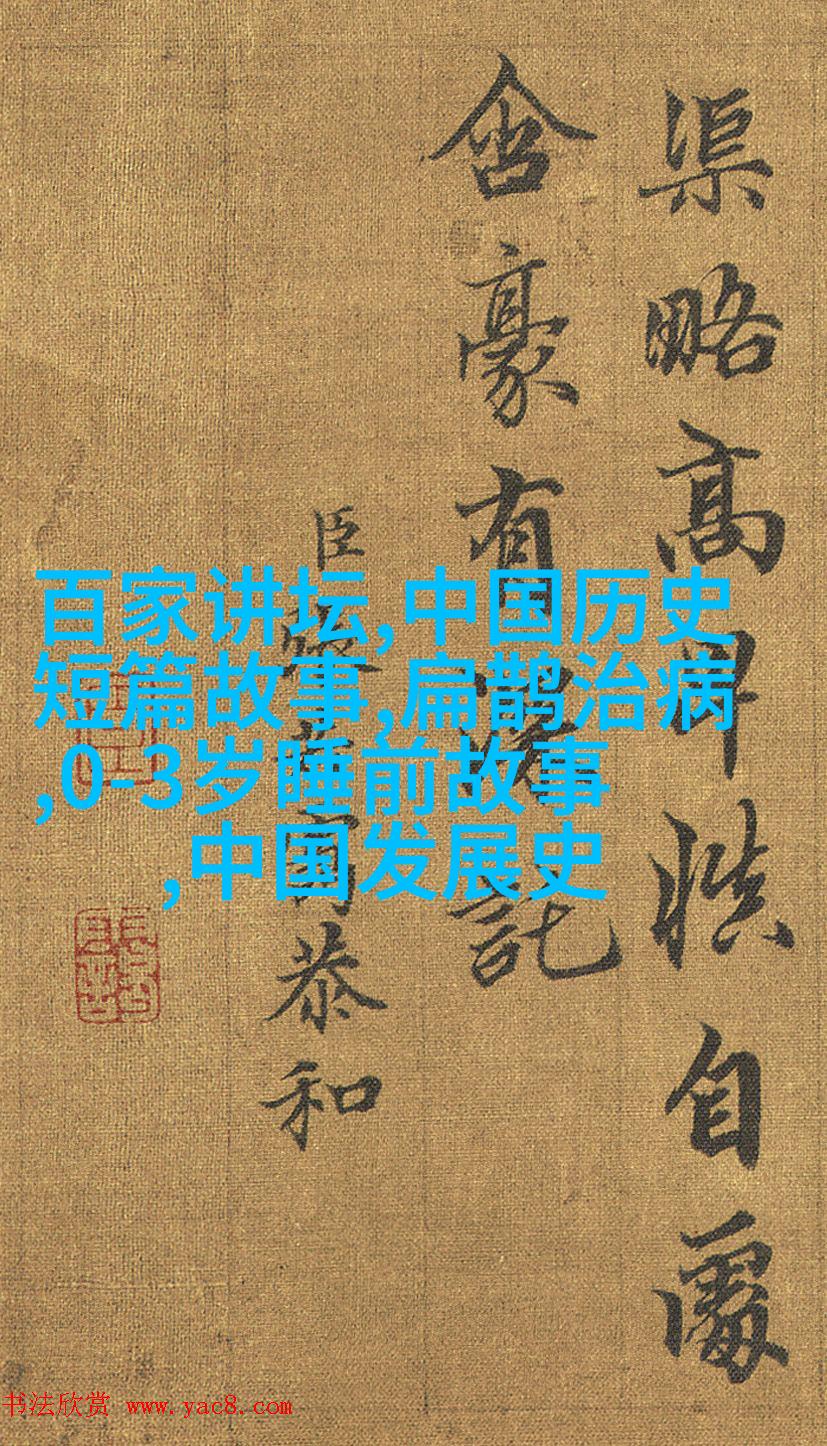 百家讲坛,中国历史
短篇故事,扁鹊治病
,0-3岁睡前故事
,中国发展史
渠略高升慎自處
含豪有託
臣恭和
书法欣赏 www.yac8.com